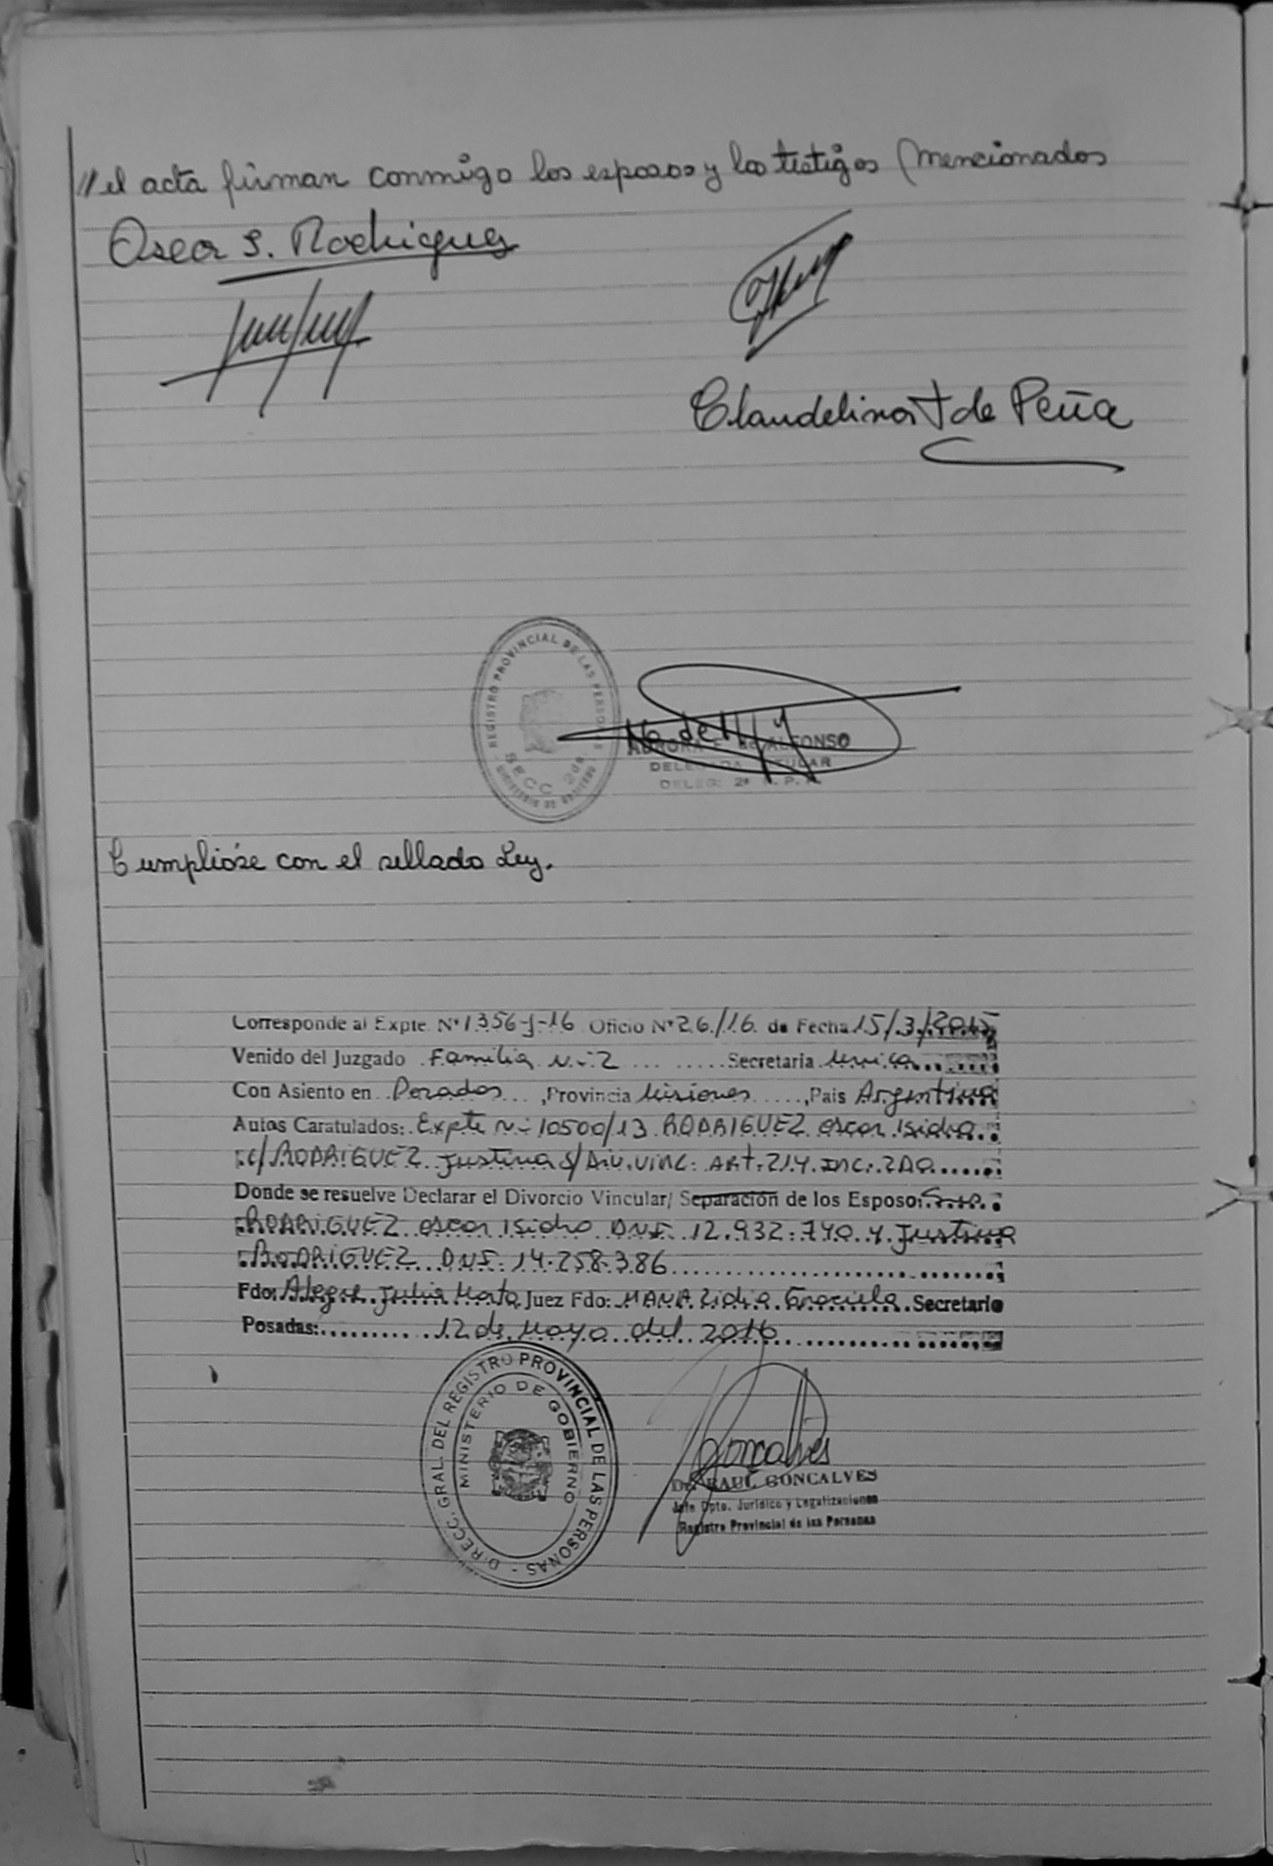 // el acta firman conmigo los esposos y los testigos mencionados
Oscar S. Rodriguez
Claudelina T de Peña
REGISTRO PROVINCIAL DE LAS PERSONAS
SECC 2da.
MINISTERIO DE GOBIERNO
AURORA F. de ALFONSO
DELEGADA TITULAR
DELEG. 2ª R. P. P.
Cumplióse con el sellado Ley.
Corresponde al Expte. Nº 1356-J-16 Oficio Nº 26/16. de Fecha 15/3/
Venido del Juzgado Familia N.- 2 Secretaria Unica
Con Asiento en Posadas, Provincia Misiones, Pais Argentina
Autos Caratulados: Expte N.- 10500/13 RODRIGUEZ Oscar Isidro
c/ RODRIGUEZ Justina S/ Div. Vinc. ART. 214 INC. 2DO
Donde se resuelve Declarar el Divorcio Vincular/ Separación de los Esposo:
RODRIGUEZ Oscar Isidro DNI. 12.932.740 y Justina
RODRIGUEZ DNI. 14.258.386
Fdo: Alegre Julia Marta Juez Fdo: Lidia Graciela Secretario
Posadas: 12 de Mayo del 2016
DIRECC. GRAL. DEL REGISTRO PROVINCIAL DE LAS PERSONAS -
MINISTERIO DE GOBIERNO
Goncalves
Dr. RAUL GONCALVES
Jefe Dpto. Jurídico y Legalizaciones
Registro Provincial de las Personas